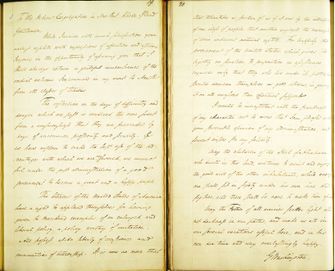 To the Hebrew Congregation in Newport Rhode Island
Gentlemen.
While I receive with much satisfaction your
address replete with expressions of affection and esteem,
I rejoice in the opportunity of assuring you that I
shall always retain a grateful remembrance of the
cordial welcome I experienced in my visit to Newport
from all classes of Citizens.
The reflection on the days of difficulty and
danger which are past is rendered the more sweet
from a consciousness that they are succeeded by
days of uncommon prosperity and security. If
we have wisdom to make the best use of the ad-
vantages with which we are now favored, we cannot
fail under the just administration of a good
government to become a great and a happy people.
The Citizens of the United States of America
have a right to applaud themselves for having
given to mankind examples of an enlarged and
liberal policy, a policy worthy of imitation.
All possess alike liberty of conscience and
immunities of citizenship. It is now no more that
20
that toleration is spoken of as if it was by the indulgence
of one class of people that another enjoyed the exercise
of their inherent natural rights. For happily the
government of the United States, which gives to
bigotry no sanction, to persecution no assistance
requires only that they who live under its protection
should demean themselves as good citizens, in giving
it on all occasions their effectual support.
It would be inconsistent with the frankness
of my character not to avow that I am pleased with
your favorable opinion of my administration, and
fervent wishes for my felicity.
May the children of the Stock of Abraham
who dwell in this land, continue to merit and enjoy
the good will of the other inhabitants, while every
one shall sit in safety under his own vine and
figtree, and there shall be none to make him afraid.
May the father of all mercies scatter light and
not darkness in our paths, and make us all in
our several vocations useful here, and in his
own due time and way everlastingly happy.
G. Washington